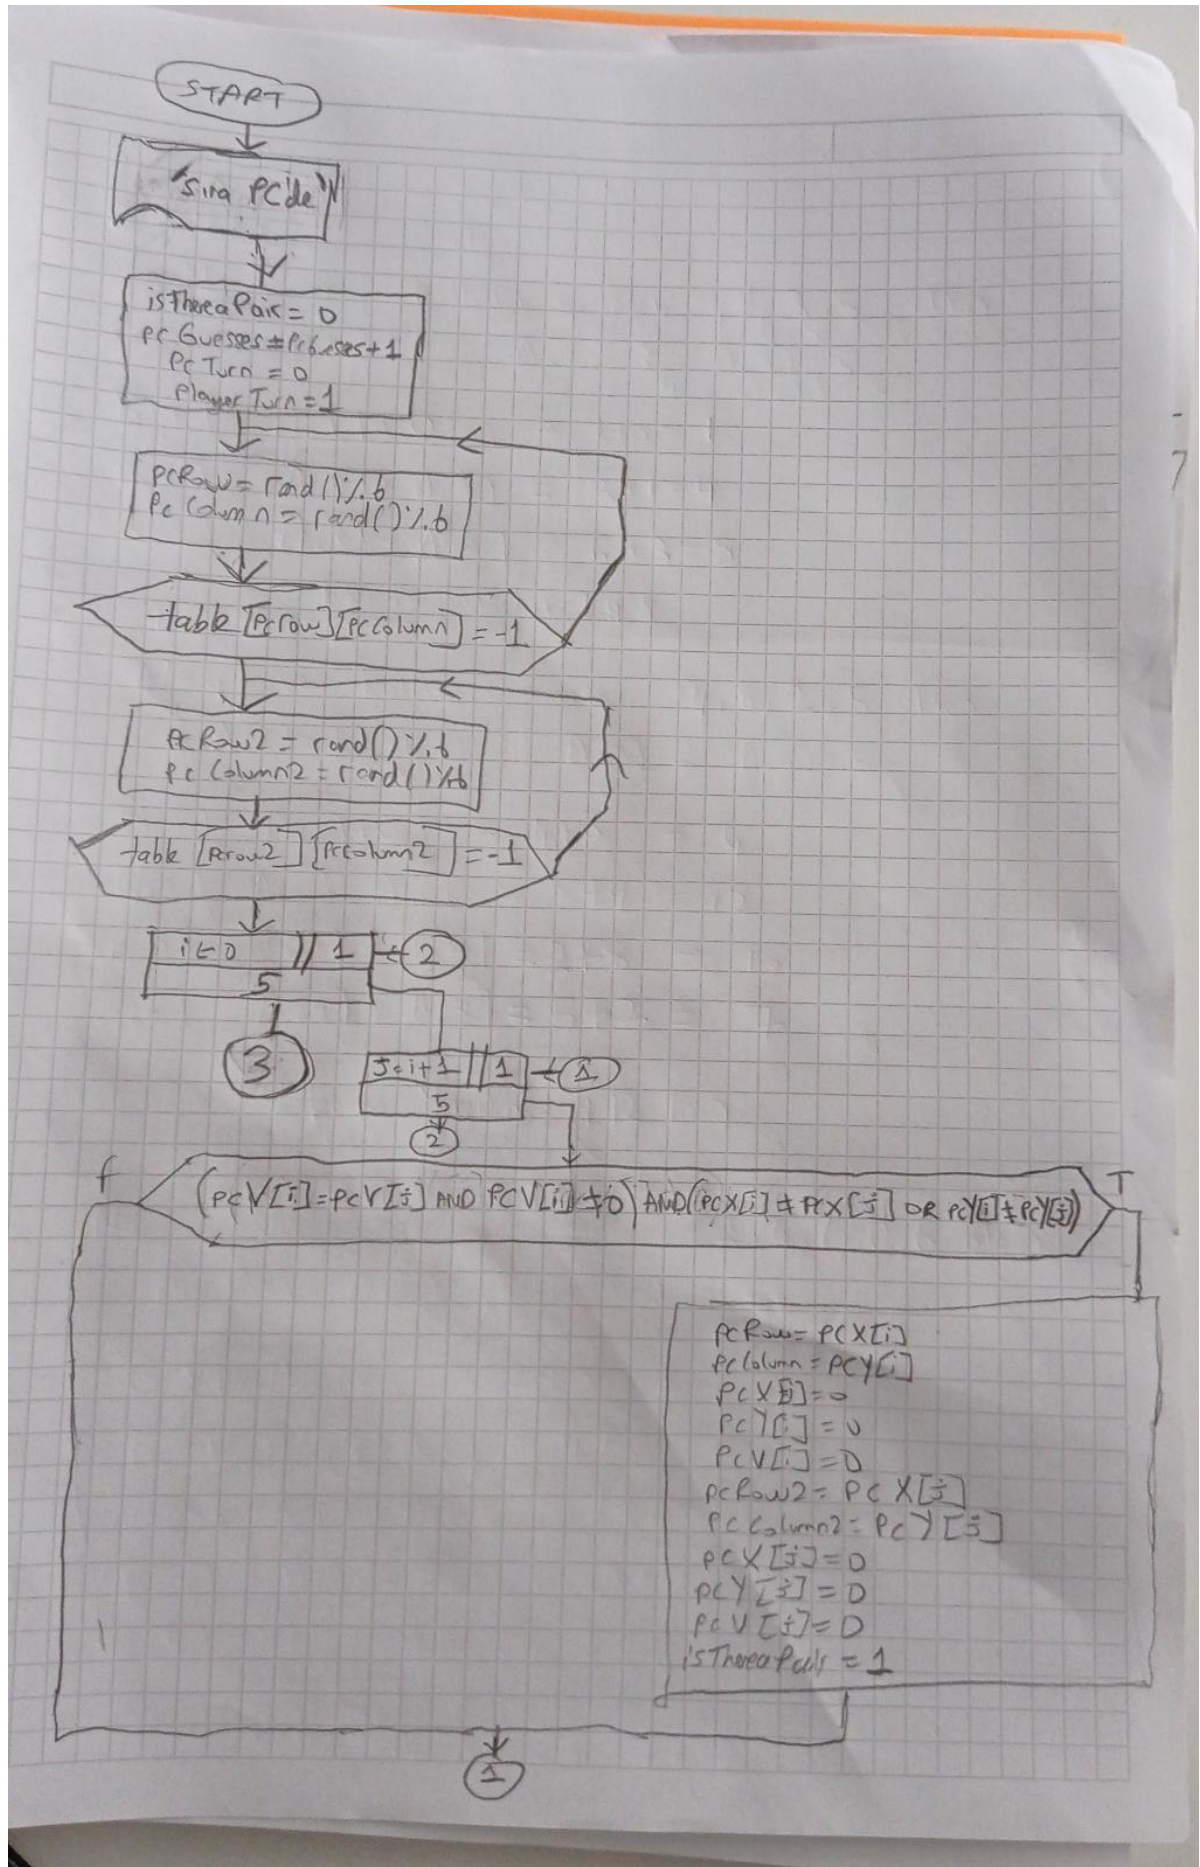 START
"Sıra PC'de"
isThereaPair = 0
PCGuesses = PcGuesses + 1
PcTurn = 0
PlayerTurn = 1
PCRow = rand()%6
PcColumn = rand()%6
table [PCrow][PCColumn] = -1
PCRow2 = rand()%6
PcColumn2 = rand()%6
table [PCrow2][PCcolumn2] = -1
i ← 0 // 1 2
5
3
J = i+1 || 1 1
5
2
f T
(PCV[i] = PCV[j] AND PCV[i] ≠ 0) AND (PCX[i] ≠ PCX[j] OR PCY[i] ≠ PCY[j])
PCRow = PCX[i]
PCColumn = PCY[i]
PCX[i] = 0
PCY[i] = 0
PCV[i] = 0
PCRow2 = PCX[j]
PCColumn2 = PCY[j]
PCX[j] = 0
PCY[j] = 0
PCV[j] = 0
isThereaPair = 1
1